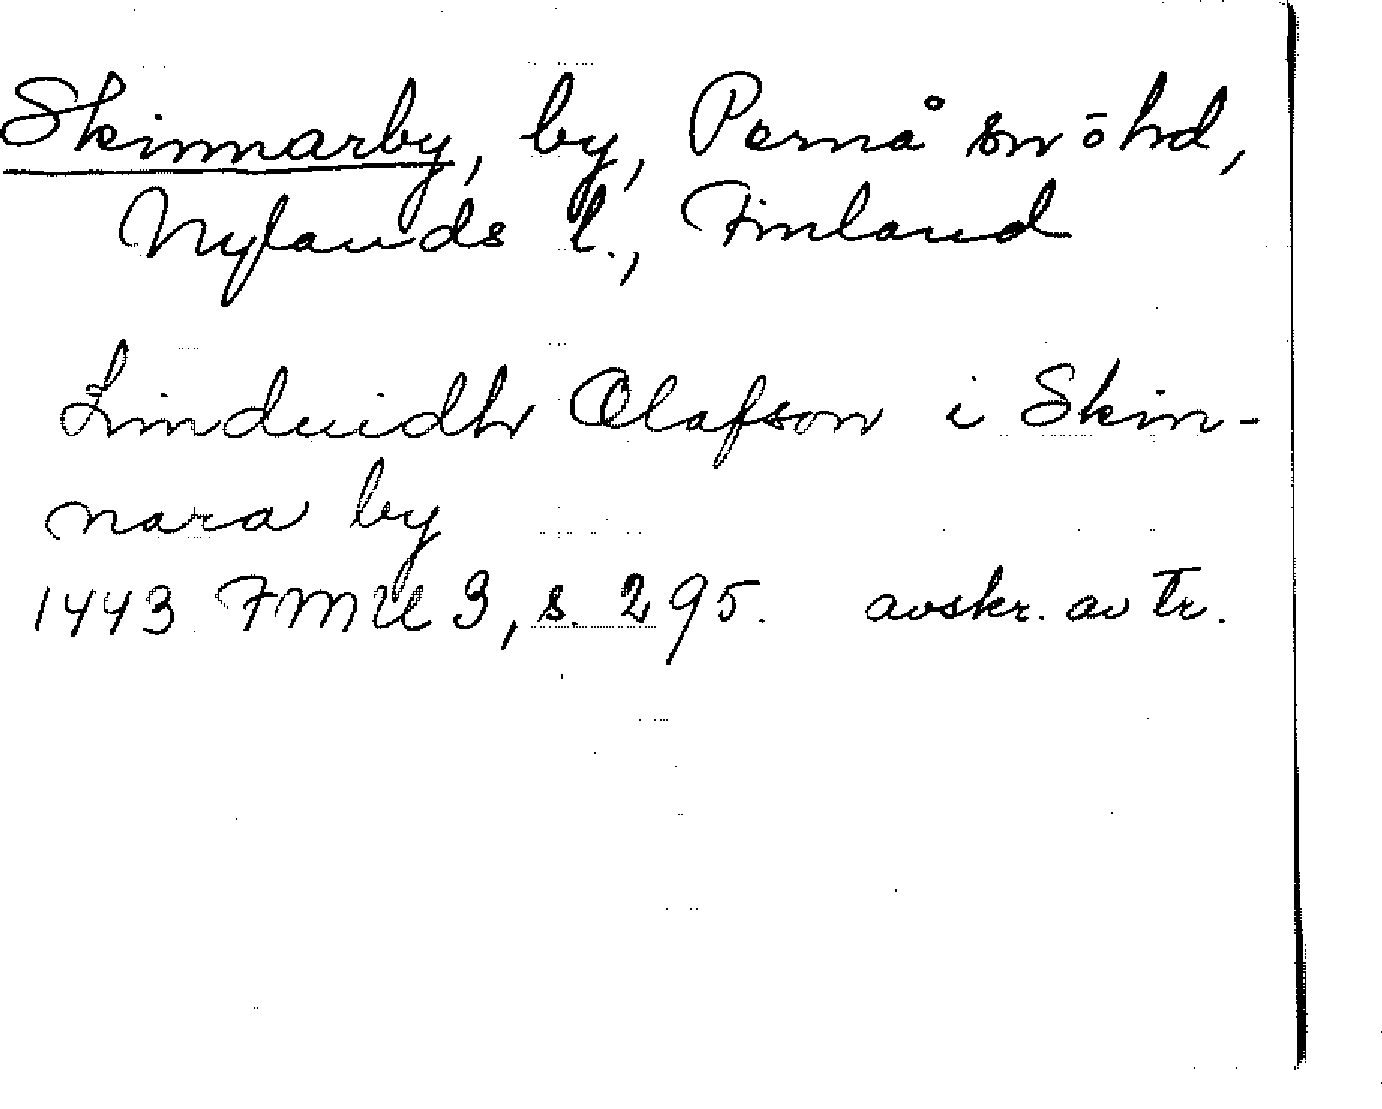 Skinnarby, by, Pernå sn o hd,
Nylands l., Finland
Linduidhr Olafson i Skin-
nara by
1443 FMU 3, s. 295. avskr. av tr.